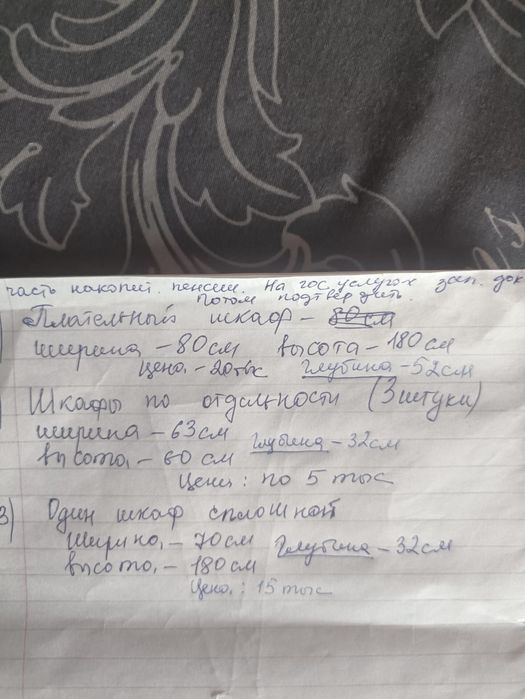 часть накопит. пенсии. На гос.услугах зап. док
Потом подтвердить.
Плательный шкаф – 80см
ширина – 80см высота – 180см
Цена – 20тыс Глубина – 52см
Шкафы по отдельности (3штуки)
ширина – 63см Глубина – 32см
высота – 60 см
Цена : по 5 тыс
3) Один шкаф сплошной
Ширина – 70см Глубина – 32см
высота – 180см
Цена : 15 тыс